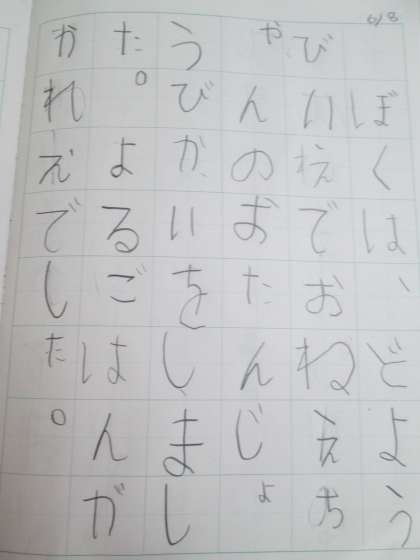 6/8
ぼくは、どよう
びいえでおねえち
ゃんのおたんじょ
うびかいをしまし
た。よるごはんが
かれえでした。